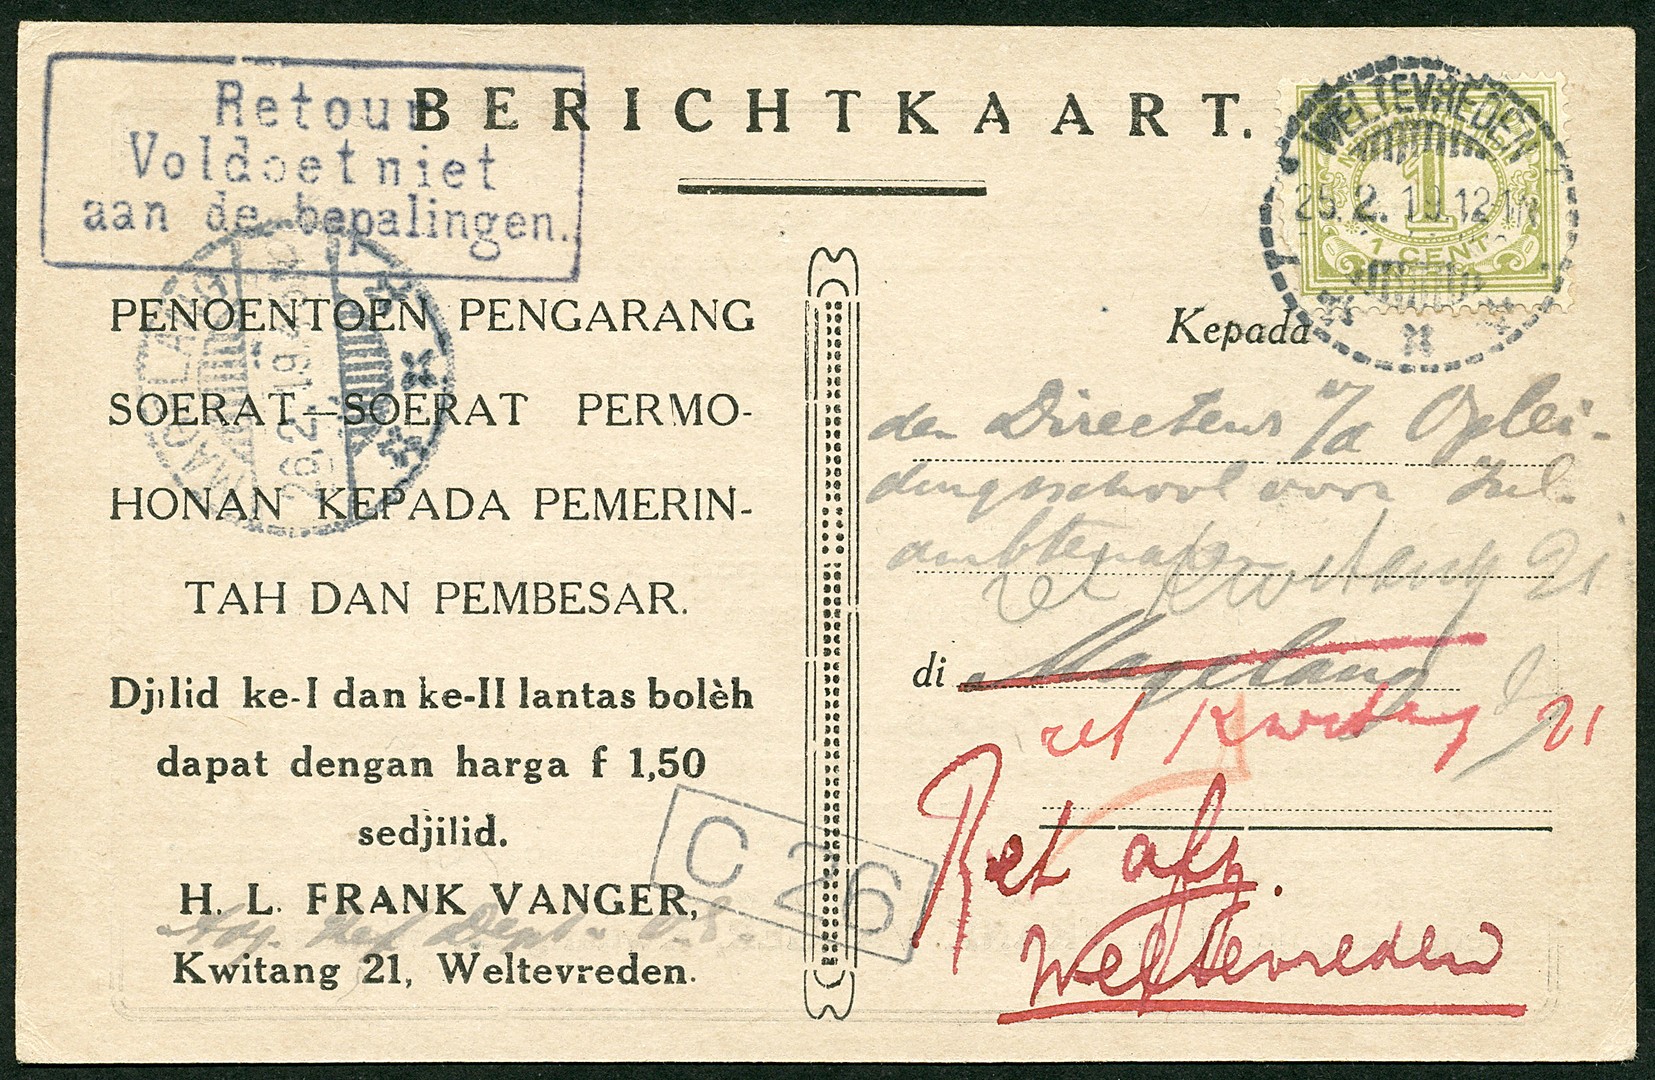 Retour
Voldoet niet
aan de bepalingen.
BERICHTKAART.
WELTEVREDEN
25.2.19.12
1
1 CENT
MAGELANG
26.2.19
PENOENTOEN PENGARANG
SOERAT—SOERAT PERMO-
HONAN KEPADA PEMERIN-
TAH DAN PEMBESAR.
Djilid ke-I dan ke-II lantas bolèh
dapat dengan harga f 1,50
sedjilid.
H. L. FRANK VANGER,
Adj. Ref. Dept.
Kwitang 21, Weltevreden.
C 26
Kepada
den Directeur v/d Oplei-
dingsschool voor Inl.
ambtenaren
ret Kwitang 21
di Magelang
ret Kwitang 21
Ret afz.
Weltevreden